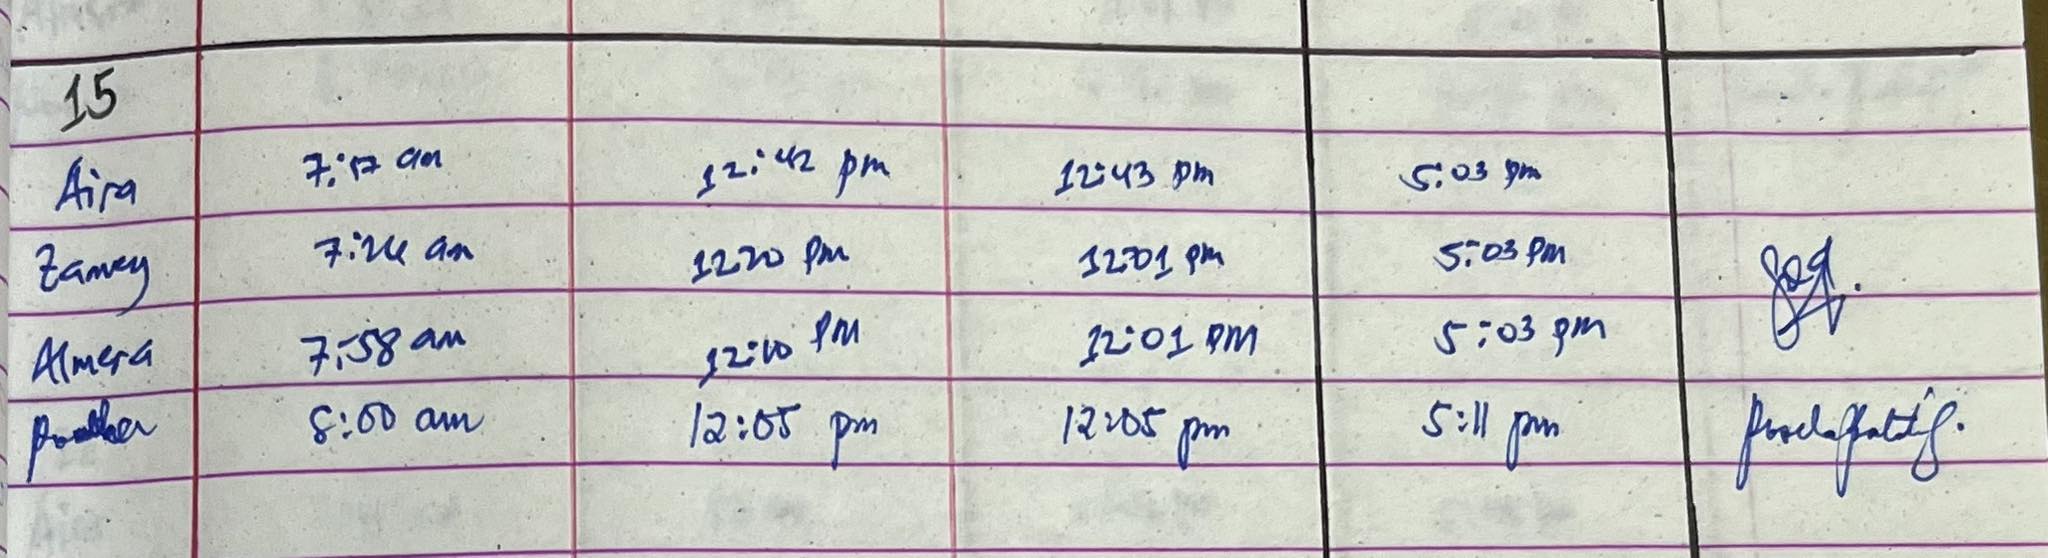 15
Aira 7:17 am 12:42 pm 12:43 pm 5:03 pm
Zamey 7:24 am 12:20 pm 12:01 pm 5:03 pm
Almera 7:58 am 12:10 PM 12:01 PM 5:03 pm
8:00 am 12:05 pm 12:05 pm 5:11 pm